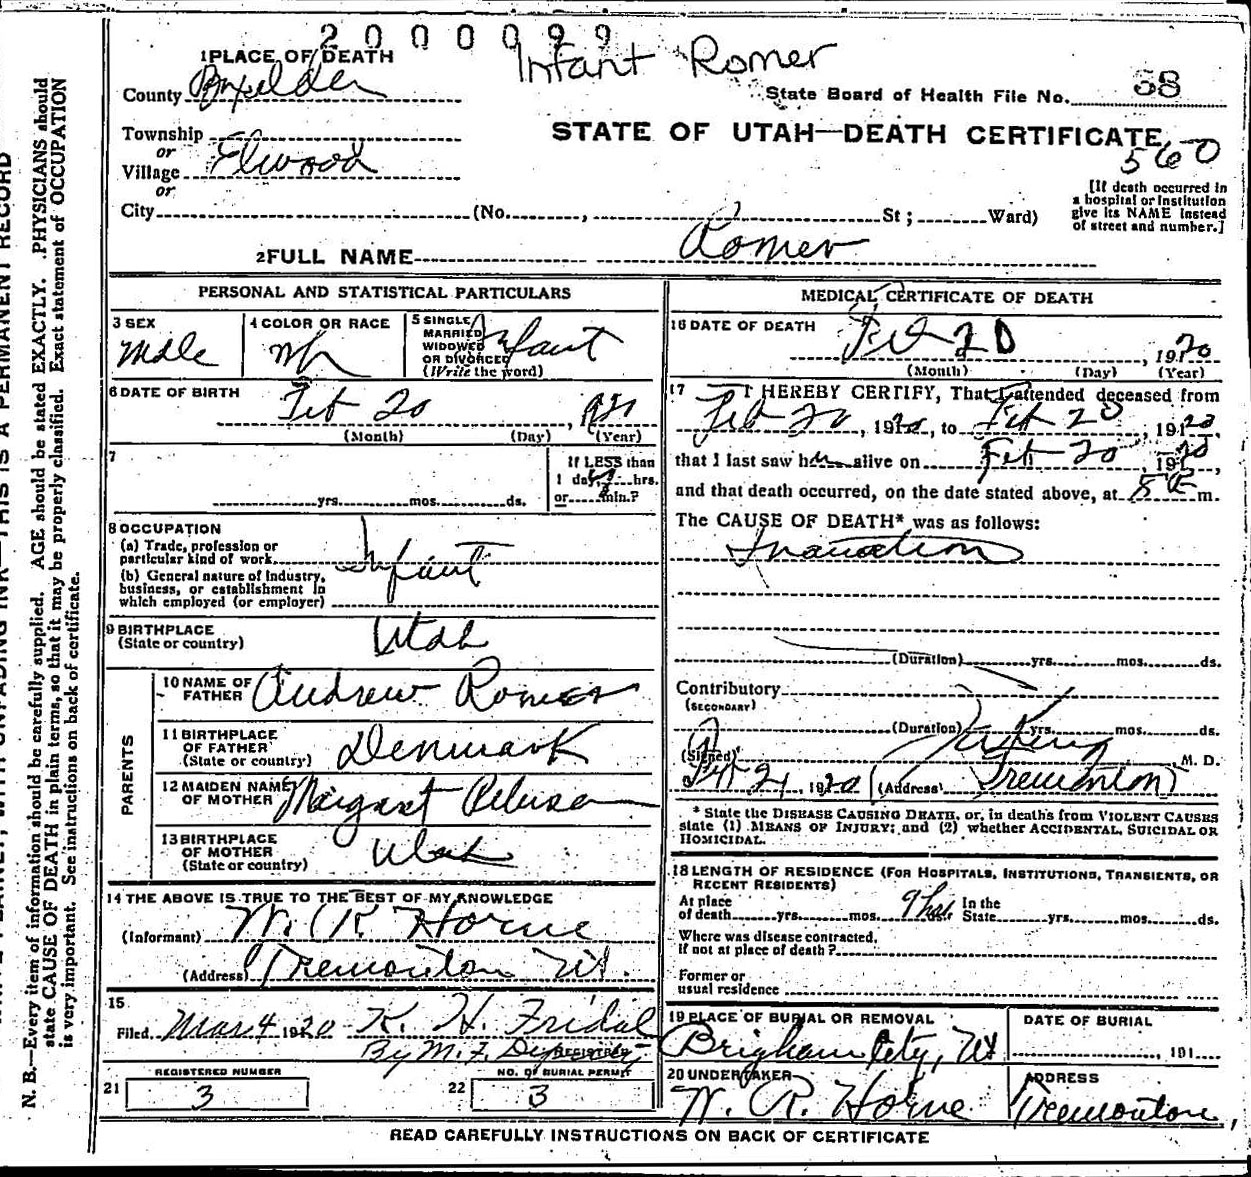 2000099
Infant Romer
1 PLACE OF DEATH
County Boxelder
State Board of Health File No. 38
Township
or
Village Elwood
or
STATE OF UTAH—DEATH CERTIFICATE
560
[If death occurred in
a hospital or institution
give its NAME instead
of street and number.]
City (No. , St ; Ward)
2 FULL NAME Romer
PERSONAL AND STATISTICAL PARTICULARS
3 SEX
Male
4 COLOR OR RACE
Wh
5 SINGLE
MARRIED
WIDOWED
OR DIVORCED
(Write the word)
Infant
6 DATE OF BIRTH
Feb 20, 1920
(Month) (Day) (Year)
7
yrs. mos. ds.
If LESS than
1 day, hrs.
or min.?
8 OCCUPATION
(a) Trade, profession or
particular kind of work
Infant
(b) General nature of industry,
business, or establishment in
which employed (or employer)
9 BIRTHPLACE
(State or country)
Utah
PARENTS
10 NAME OF
FATHER
Andrew Romer
11 BIRTHPLACE
OF FATHER
(State or country)
Denmark
12 MAIDEN NAME
OF MOTHER
Margaret
13 BIRTHPLACE
OF MOTHER
(State or country)
Utah
14 THE ABOVE IS TRUE TO THE BEST OF MY KNOWLEDGE
(Informant) W. R. Horne
(Address) Tremonton Ut.
15
Filed Mar 4 1920 K. H. Fridal
By M. F. REGISTRAR
REGISTERED NUMBER
21 3
NO. OF BURIAL PERMIT
22 3
MEDICAL CERTIFICATE OF DEATH
16 DATE OF DEATH
Feb 20, 1920
(Month) (Day) (Year)
17 I HEREBY CERTIFY, That I attended deceased from
Feb 20, 1920, to Feb 20, 1920,
that I last saw him alive on Feb 20, 1920,
and that death occurred, on the date stated above, at 5 m.
The CAUSE OF DEATH* was as follows:
Inanition
(Duration) yrs. mos. ds.
Contributory
(SECONDARY)
(Duration) yrs. mos. ds.
(Signed) M. D.
Feb 21, 1920 (Address) Tremonton
* State the DISEASE CAUSING DEATH, or, in deaths from VIOLENT CAUSES
state (1) MEANS OF INJURY; and (2) whether ACCIDENTAL, SUICIDAL OR
HOMICIDAL.
18 LENGTH OF RESIDENCE (FOR HOSPITALS, INSTITUTIONS, TRANSIENTS, OR
RECENT RESIDENTS)
At place
of death yrs. mos. 9 hrs. In the
State yrs. mos. ds.
Where was disease contracted,
if not at place of death?
Former or
usual residence
19 PLACE OF BURIAL OR REMOVAL
Brigham City, Ut
DATE OF BURIAL
, 191
20 UNDERTAKER
W. R. Horne
ADDRESS
Tremonton
READ CAREFULLY INSTRUCTIONS ON BACK OF CERTIFICATE
N. B.—Every item of information should be carefully supplied. AGE should be stated EXACTLY. PHYSICIANS should
state CAUSE OF DEATH in plain terms, so that it may be properly classified. Exact statement of OCCUPATION
is very important. See instructions on back of certificate.